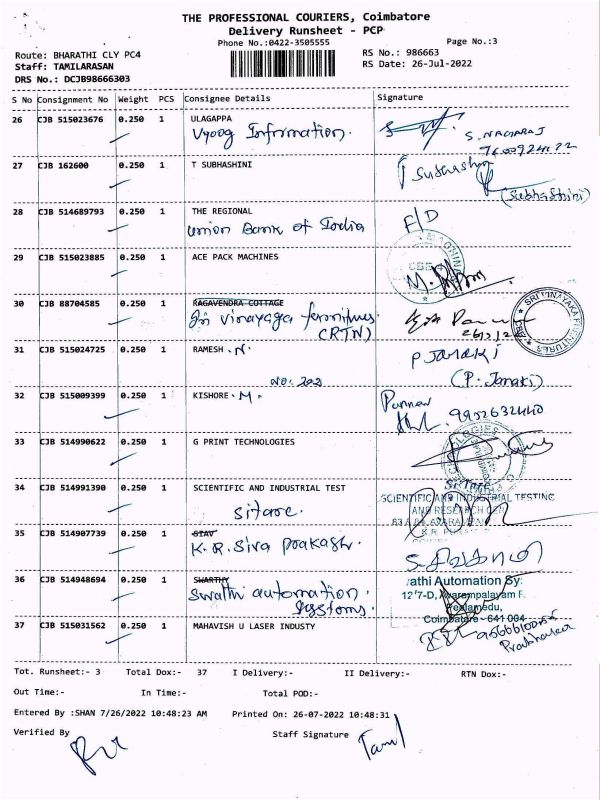 THE PROFESSIONAL COURIERS, Coimbatore
Delivery Runsheet - PCP
Phone No.:0422-3505555
Page No.:3
Route: BHARATHI CLY PC4
RS No.: 986663
Staff: TAMILARASAN
RS Date: 26-Jul-2022
DRS No.: DCJB98666303
S No Consignment No Weight PCS Consignee Details Signature
26 CJB 515023676 0.250 1 ULAGAPPA
Vyoog Information.
S. NAGARAJ
27 CJB 162600 0.250 1 T SUBHASHINI
(Subhashini)
28 CJB 514689793 0.250 1 THE REGIONAL
Union Bank of India
F/D
29 CJB 515023885 0.250 1 ACE PACK MACHINES
30 CJB 88704585 0.250 1 RAGAVENDRA COTTAGE
Sri Vinayaga furnitures.
(RTN)
SRI VINAYAKA FURNITURES
31 CJB 515024725 0.250 1 RAMESH .N.
P JANAKI
(P. Janaki)
No: 202
32 CJB 515009399 0.250 1 KISHORE .M.
9952632440
33 CJB 514990622 0.250 1 G PRINT TECHNOLOGIES
34 CJB 514991390 0.250 1 SCIENTIFIC AND INDUSTRIAL TEST
Sitarc.
SiTarc
SCIENTIFIC AND INDUSTRIAL TESTING
AND RESEARCH
35 CJB 514907739 0.250 1 SIAV
K.R. Siva prakash.
36 CJB 514948694 0.250 1 SWARTHY
Swathi automation
Systems.
athi Automation Sy
12'7-D, Avarampalayam
Peelamedu,
Coimbatore - 641 004
37 CJB 515031562 0.250 1 MAHAVISH U LASER INDUSTY
Prabhakar
Tot. Runsheet:- 3 Total Dox:- 37 I Delivery:- II Delivery:- RTN Dox:-
Out Time:- In Time:- Total POD:-
Entered By :SHAN 7/26/2022 10:48:23 AM Printed On: 26-07-2022 10:48:31
Verified By Staff Signature
Tamil